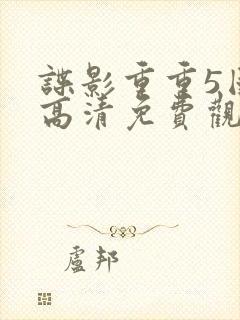 諜影重重5
高清免費觀
盧邦